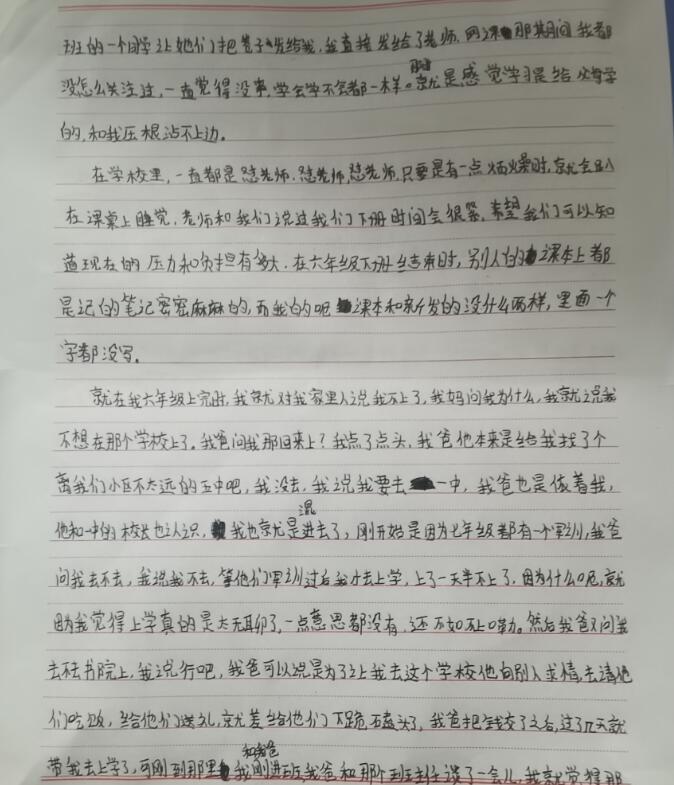 班的一个同学让她们把卷子发给我,我直接发给了老师.网课那期间我都
没怎么关注过,一直觉得没事,学会学不会都一样。那时就是感觉学习是给 学
的,和我压根沾不上边.
在学校里,一直都是怼老师.怼老师,怼老师,只要是有一点烦燥时,就会趴
在课桌上睡觉.老师和我们说过我们下册时间会很紧,希望我们可以知
道现在的压力和负担有多大.在六年级下册结束时,别人的课本上都
是记的笔记密密麻麻的,而我的呢课本和新发的没什么两样,里面一个
字都没写.
就在我六年级上完时,我就对我家里人说我不上了,我妈问我为什么,我就说我
不想在那个学校上了.我爸问我那回来上?我点了点头,我爸他本来是给我找了个
离我们小区不太远的五中吧,我没去,我说我要去一中,我爸也是依着我,
他和一中的校长也认识,我也就是混进去了,刚开始是因为七年级都有一个军训,我爸
问我去不去,我说我不去,等他们军训过后我才去上学,上了一天半不上了.因为什么呢,就
因为我觉得上学真的是太无聊了,一点意思都没有,还不如不上嘞.然后我爸又问我
去不去书院上,我说行吧,我爸可以说是为了让我去这个学校他向别人求情,去请他
们吃饭,给他们送礼,就差给他们下跪磕头了,我爸把钱交了之后,过了几天就
带我去上学了,可刚到那里我和我爸刚进班,我爸和那个班主任谈了一会儿,我就觉得那